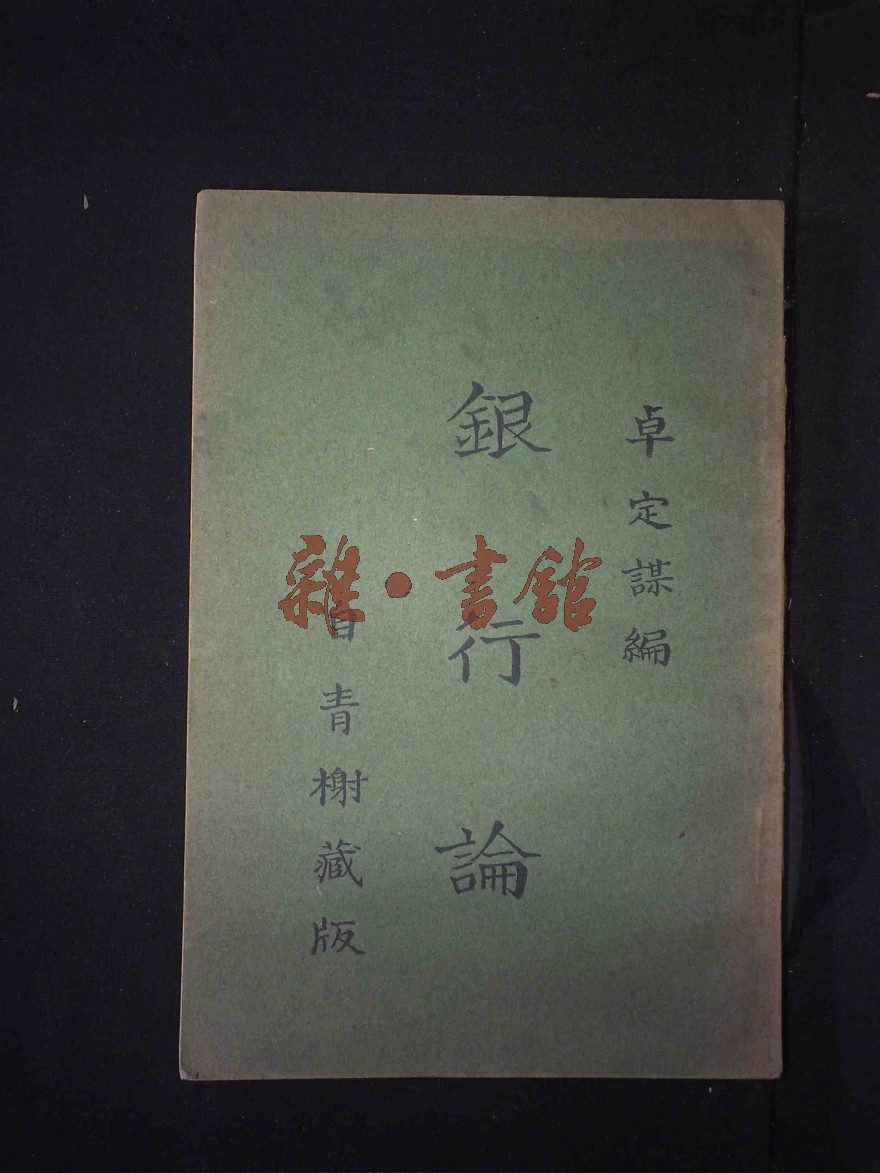 卓定謀編
銀行論
自青榭藏版
雜·書館